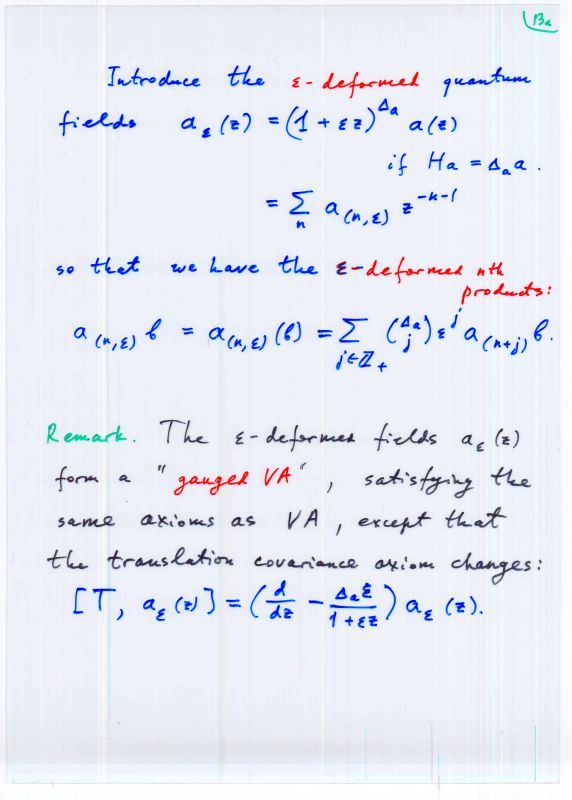 13a
Introduce the ε-deformed quantum
fields a_ε(z) = (1 + εz)^{Δ_a} a(z)
if Ha = Δ_a a.
= Σ_n a_{(n,ε)} z^{-n-1}
so that we have the ε-deformed nth
products:
a_{(n,ε)} b = a_{(n,ε)}(b) = Σ_{j∈ℤ_+} (Δ_a \choose j) ε^j a_{(n+j)} b.
Remark. The ε-deformed fields a_ε(z)
form a "gauged VA", satisfying the
same axioms as VA, except that
the translation covariance axiom changes:
[T, a_ε(z)] = (d/dz - Δ_a ε/(1+εz)) a_ε(z).